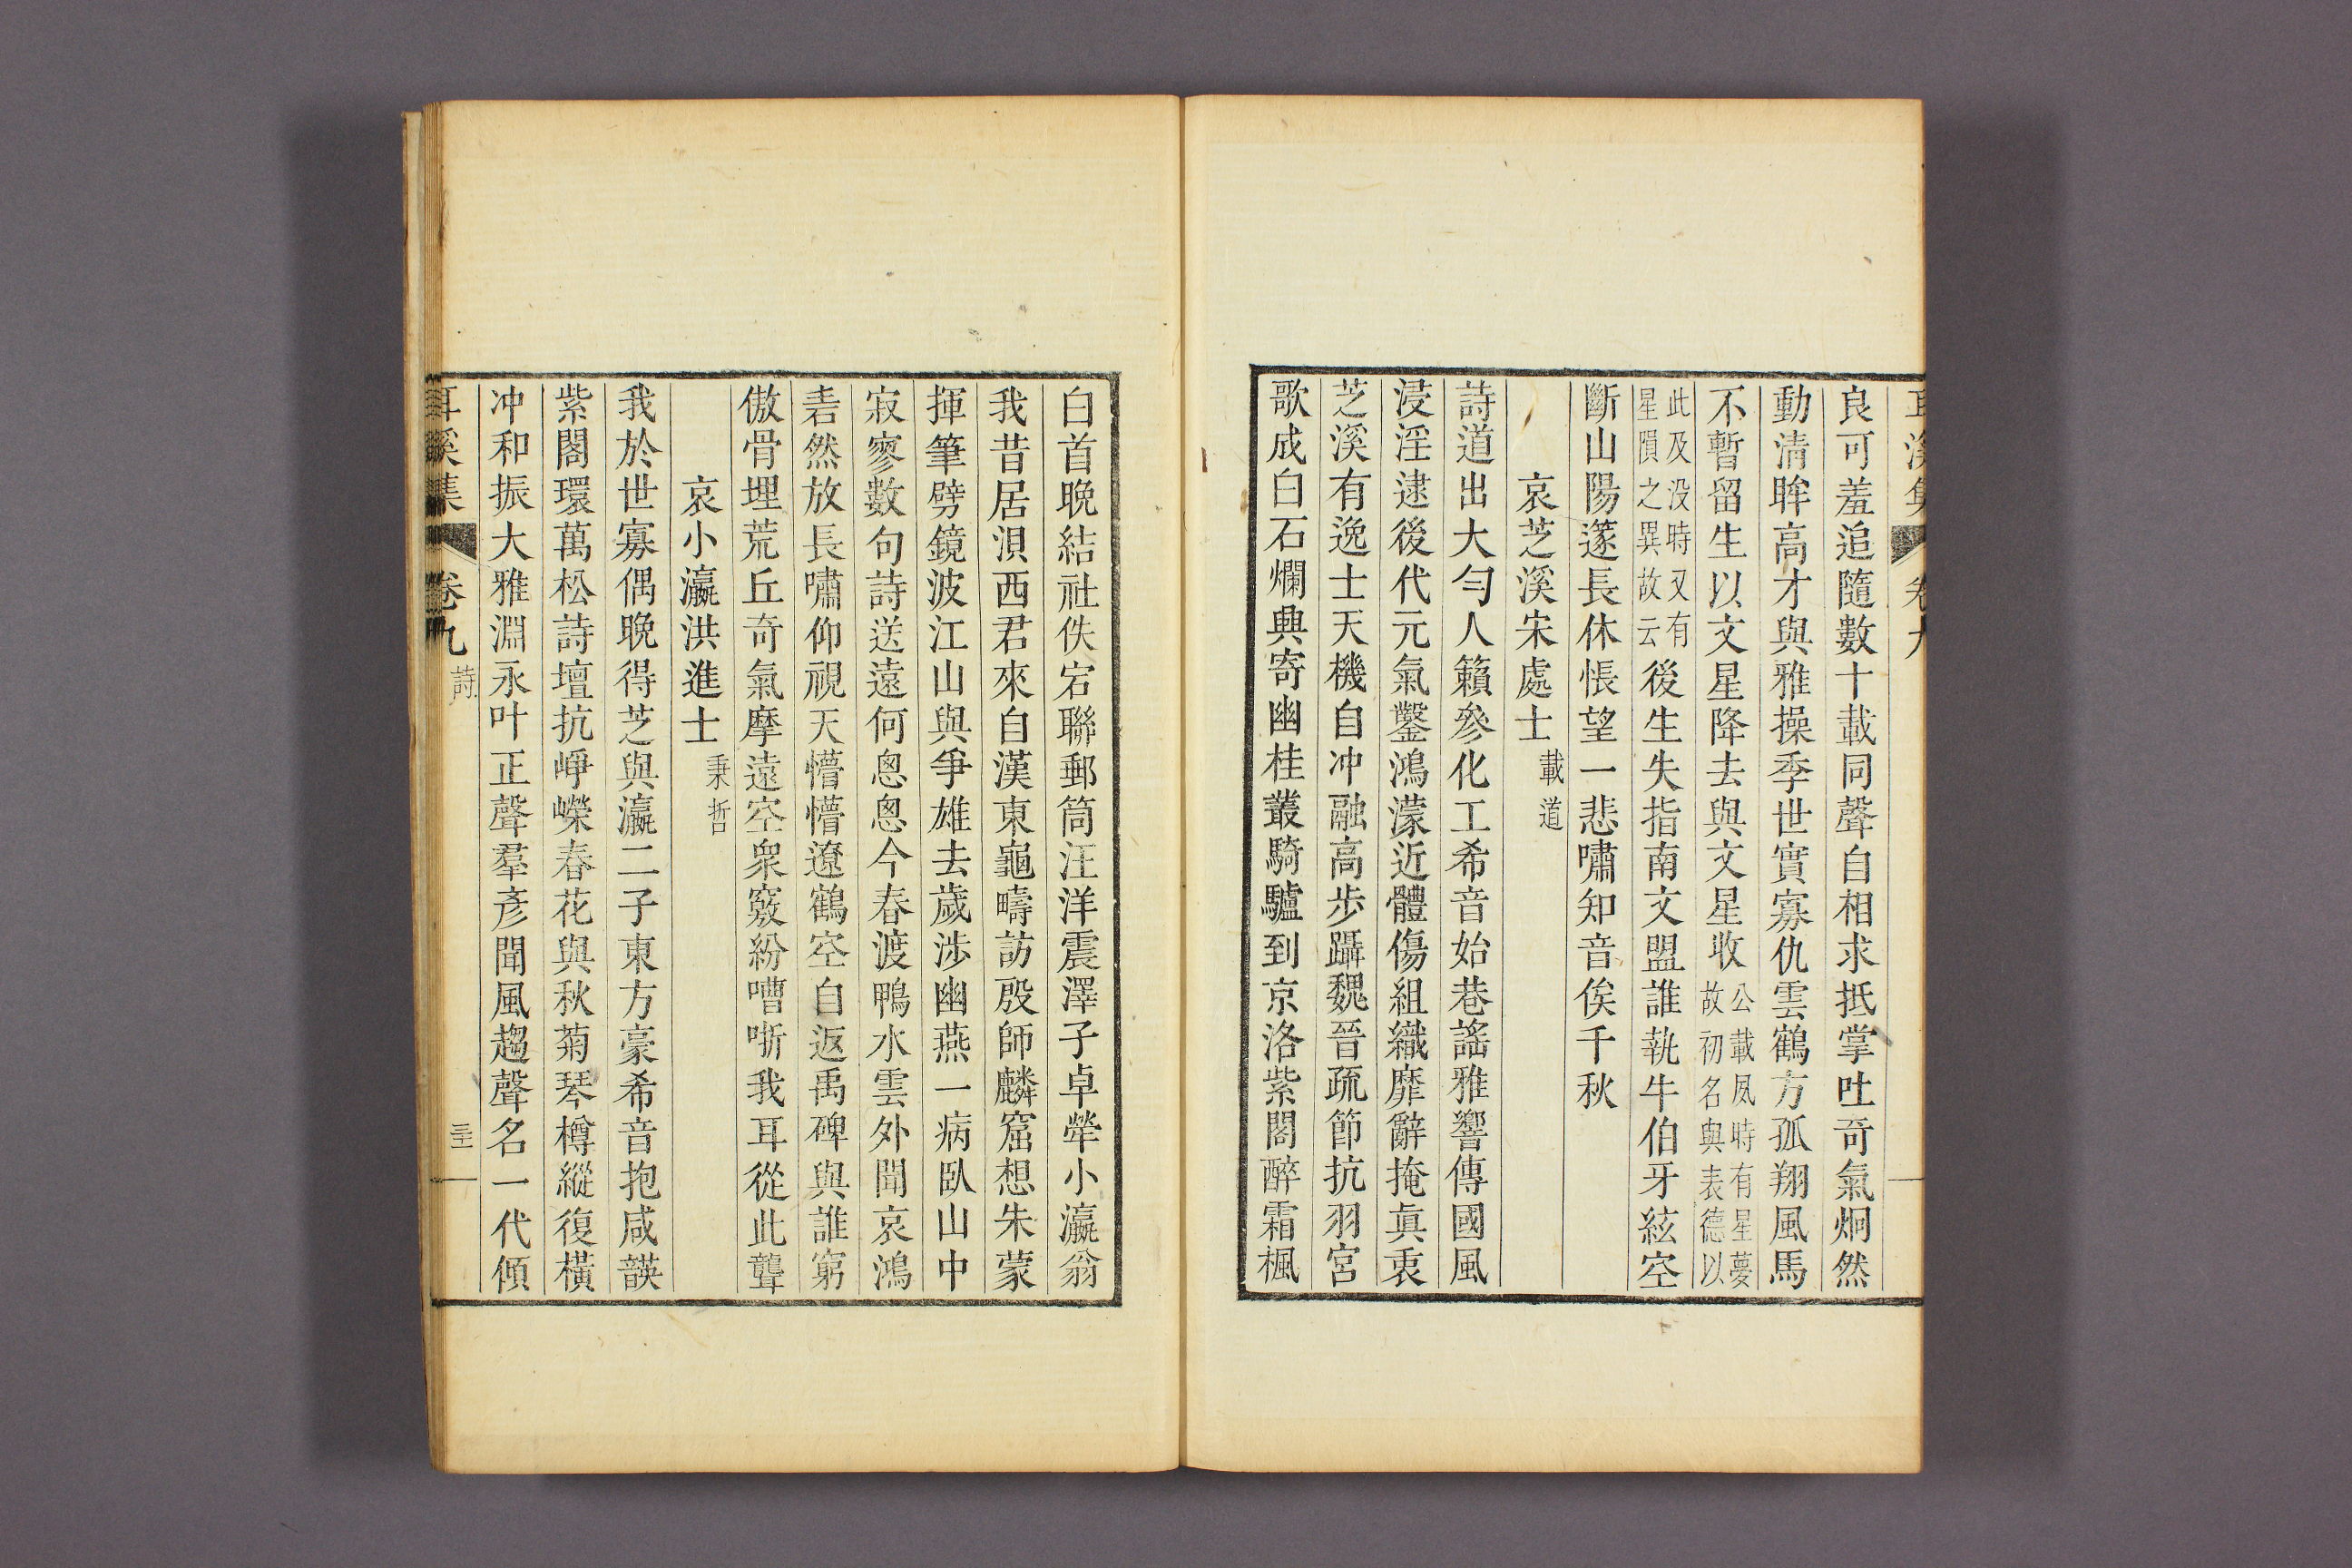 耳溪集 卷九
良可羞追隨數十載同聲自相求抵掌吐奇氣炯然
動清眸高才與雅操季世實寡仇雲鶴方孤翔風馬
不暫留生以文星降去與文星收公載夙時有星夢故初名與表德以
此及没時又有星隕之異故云後生失指南文盟誰執牛伯牙絃空
斷山陽篴長休悵望一悲嘯知音俟千秋
哀芝溪宋處士載道
詩道出大勻人籟參化工希音始巷謠雅響傳國風
浸淫逮後代元氣鑿鴻濛近體傷組織靡辭掩眞衷
芝溪有逸士天機自冲融高步躡魏晉疏節抗羽宮
歌成白石爛興寄幽桂叢騎驢到京洛紫閣醉霜楓
白首晩結社佚宕聯郵筒汪洋震澤子卓犖小瀛翁
我昔居浿西君來自漢東龜疇訪殷師麟窟想朱蒙
揮筆劈鏡波江山與爭雄去歲涉幽燕一病臥山中
寂寥數句詩送遠何悤悤今春渡鴨水雲外聞哀鴻
砉然放長嘯仰視天懵懵遼鶴空自返禹碑與誰窮
傲骨埋荒丘奇氣摩遠空衆竅紛嘈哳我耳從此聾
哀小瀛洪進士秉哲
我於世寡偶晩得芝與瀛二子東方豪希音抱咸韺
紫閣環萬松詩壇抗崢嶸春花與秋菊琴樽縱復橫
冲和振大雅淵永叶正聲羣彦聞風趨聲名一代傾
耳溪集 卷九 詩